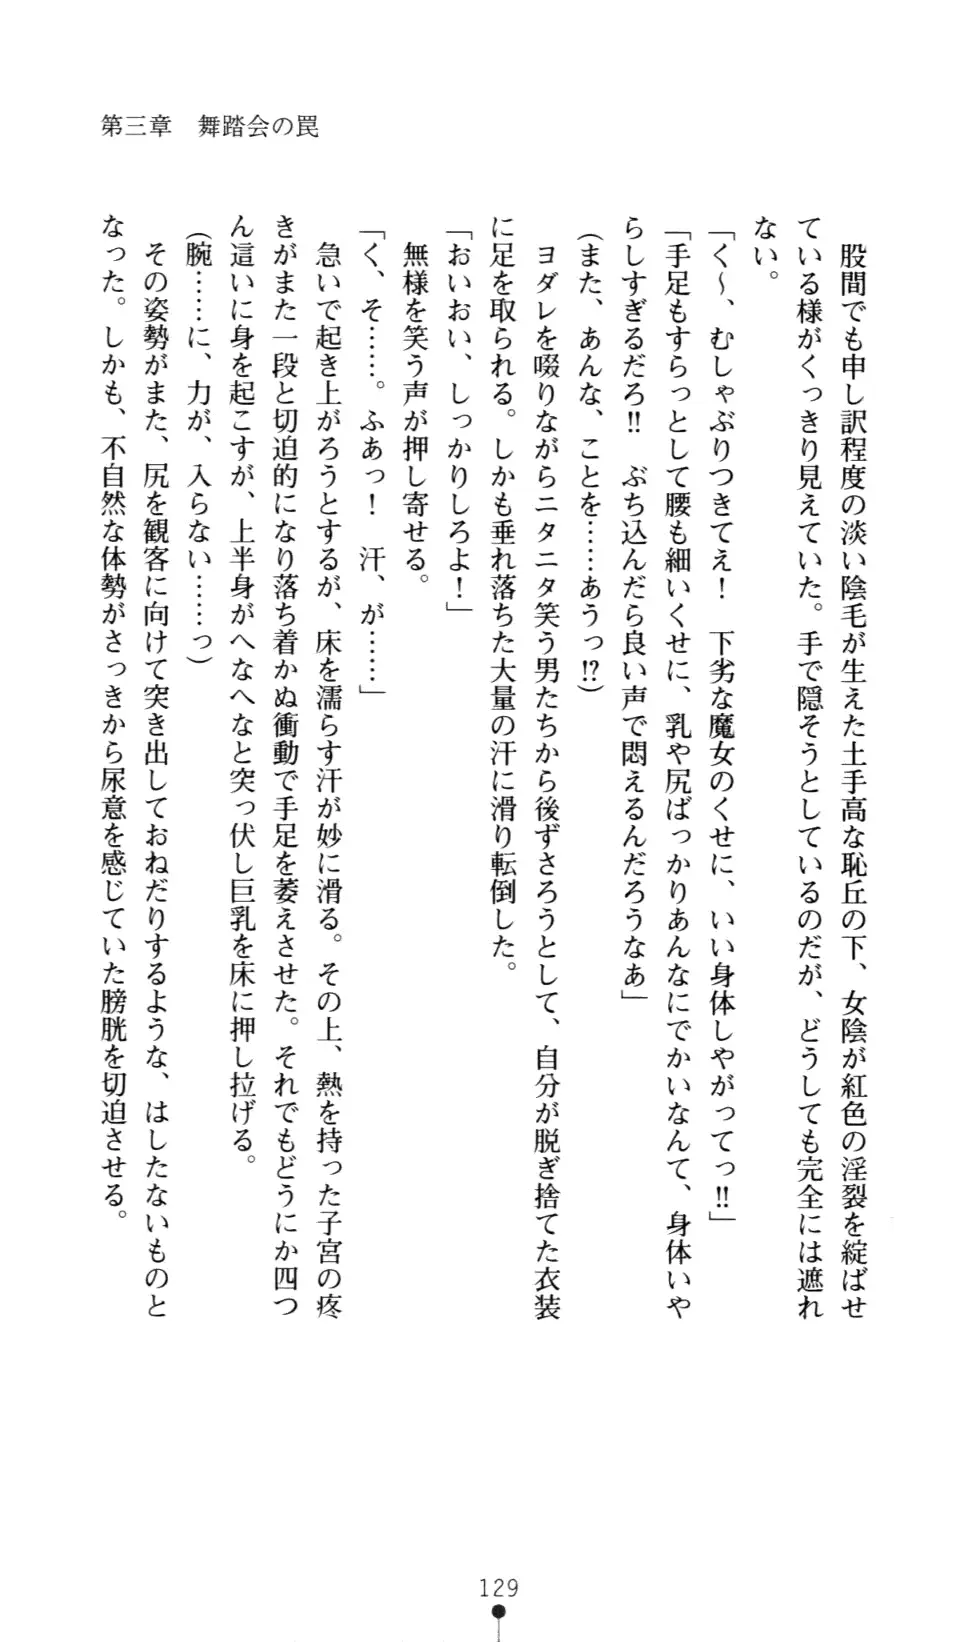 第三章　舞踏会の罠
　股間でも申し訳程度の淡い陰毛が生えた土手高な恥丘の下、女陰が紅色の淫裂を綻ばせ
ている様がくっきり見えていた。手で隠そうとしているのだが、どうしても完全には遮れ
ない。
「く～、むしゃぶりつきてえ！　下劣な魔女のくせに、いい身体しやがってっ!!」
「手足もすらっとして腰も細いくせに、乳や尻ばっかりあんなにでかいなんて、身体いや
らしすぎるだろ!!　ぶち込んだら良い声で悶えるんだろうなぁ」
（また、あんな、ことを……あうっ!?）
　ヨダレを啜りながらニタニタ笑う男たちから後ずさろうとして、自分が脱ぎ捨てた衣装
に足を取られる。しかも垂れ落ちた大量の汗に滑り転倒した。
「おいおい、しっかりしろよ！」
　無様を笑う声が押し寄せる。
「く、そ……。ふあっ！　汗、が……」
　急いで起き上がろうとするが、床を濡らす汗が妙に滑る。その上、熱を持った子宮の疼
きがまた一段と切迫的になり落ち着かぬ衝動で手足を萎えさせた。それでもどうにか四つ
ん這いに身を起こすが、上半身がへなへなと突っ伏し巨乳を床に押し拉げる。
（腕……に、力が、入らない……っ）
　その姿勢がまた、尻を観客に向けて突き出しておねだりするような、はしたないものと
なった。しかも、不自然な体勢がさっきから尿意を感じていた膀胱を切迫させる。
129